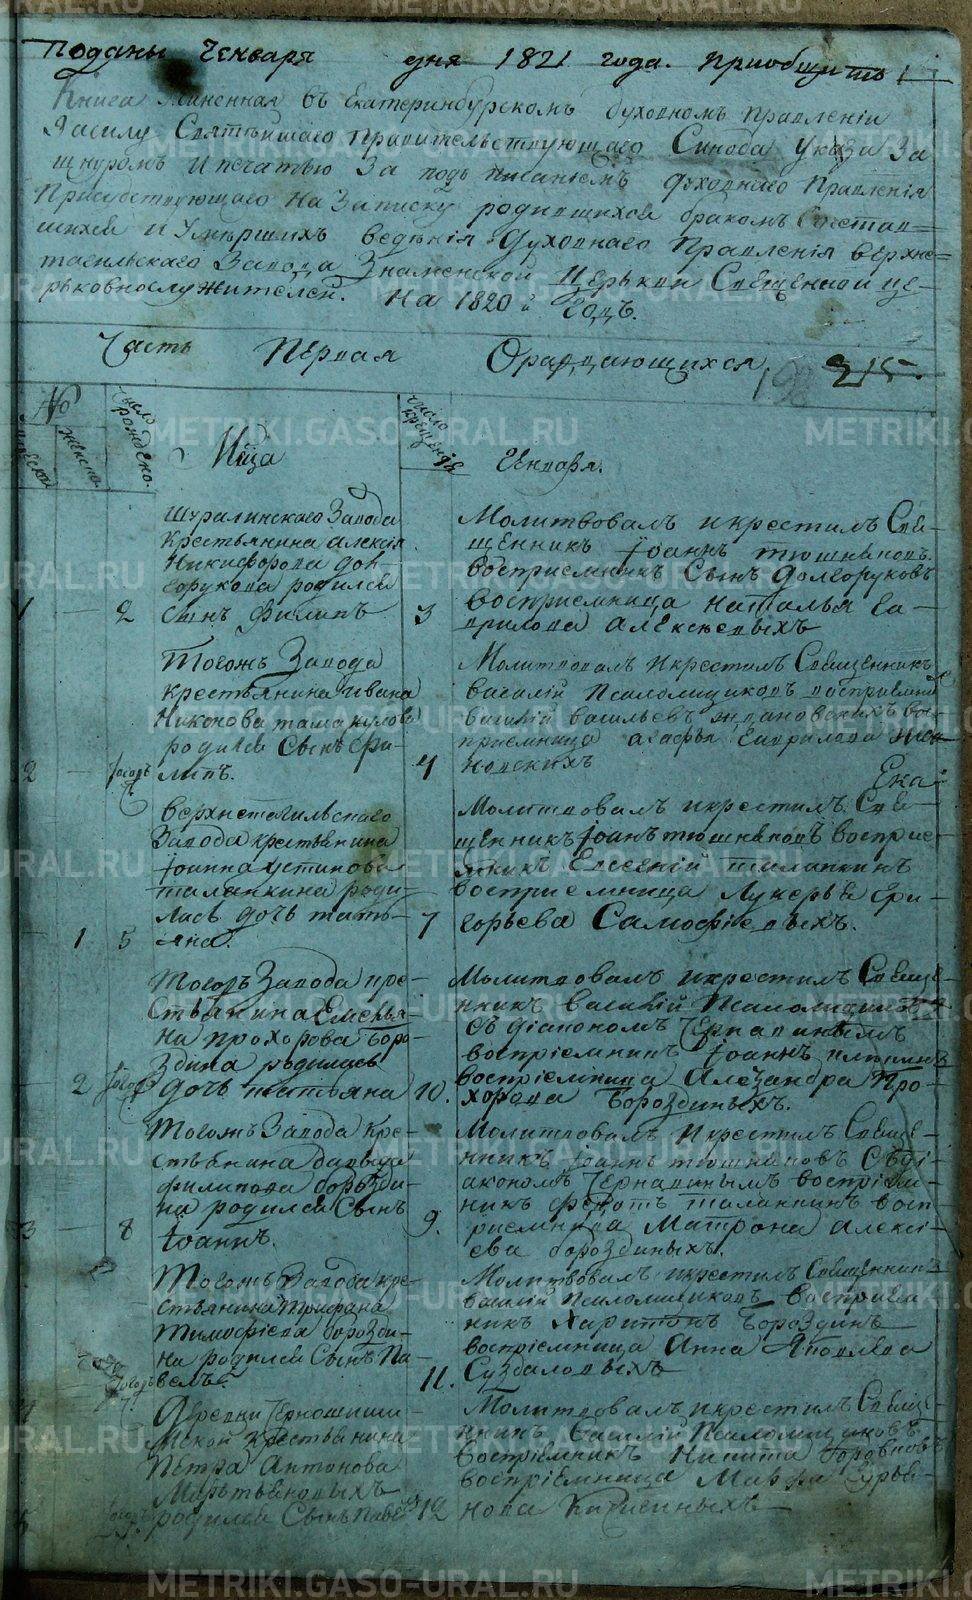 Поданы Генваря дня 1821 года. Приобщить
Книга Чиненная въ Екатеринбурскомъ духовномъ правленіи
Засилу Святѣйшаго правительствующаго Синода указа За
шнуромъ ипечатью За подъ писаніемъ духовнаго Правленія
Присутствующаго На Записку родившихся бракомъ Сочетав=
шихся и Умершихъ ведѣнія Духовнаго Правленія верхне=
тагильскаго Завода Знаменской Церькви Священной це-
рьковнослужителей. На 1820й Годъ.
Часть Первая Ораждающихся 215.
№ число рождено. число крещенія
мужеска женска.
Генваря.
Шуралинскаго Завода
крестьянина алексія
Никифорова дол-
горукова родился
1 2 Сынъ Филипъ 3
Молитвовалъ икрестилъ Свя-
щенникъ Іоаннъ тюшняковъ.
восприемникъ Сынъ Долгоруковъ
восприемница наталья Га-
врилова алексѣевыхъ
Тогожъ Завода
крестьянина ивана
Никонова
родился Сынъ Фи-
2 тогожъ липъ. 4
Молитвовалъ икрестилъ Священникъ
василій Псаломщиковъ восприемникъ
василій васильевъ вос-
приемница агафья Гаврилова
Ека-
верхнетагильскаго
Завода крестьянина
Іоанна устинова
таланкина роди-
лась дочь тать-
1 5 яна. 7
Молитвовалъ икрестилъ Свя-
щенникъ Іоанъ тюшняковъ восприе-
мникъ Евсевій таланкинъ
восприемница Лукерья Гри-
горьева Самофѣевыхъ.
Тогожъ Завода кре-
стьянина Емелья-
на прохорова Боро-
здина родилась
2 тогожъ дочь татьяна 10.
Молитвовалъ икрестилъ Свяще-
нникъ василій Псаломщиковъ
съ діакономъ Чернавинымъ
воспріемникъ Іоаннъ
воспріемница Александра Про-
хорова Бороздиныхъ.
Тогожъ Завода кре-
стьянина давыда
филипова борозди-
на родился Сынъ
3 8 Іоаннъ. 9.
Молитвовалъ икрестилъ Свяще-
нникъ Іоаннъ тюшняковъ Съді-
акономъ Чернавинымъ воспріем-
никъ федотъ таланкинъ восп-
риемница Матрона алексі-
ева бороздиныхъ.
Тогожъ Завода кре-
стьянина Трифана
Тимофѣева борозди-
на родился Сынъ Па-
4 тогожъ велъ. 11.
Молитвовалъ икрестилъ Священникъ
василій Псаломщиковъ восприем-
никъ Харитонъ Бороздинъ
восприемница Анна Яковлева
Суздаловыхъ
Деревни Черношиши-
мской крестьянина
Петра Антонова
Мартьяновыхъ
5 родился Сынъ Павелъ 12
Молитвовалъ икрестилъ Свяще-
нникъ василій Псаломщиковъ
воспріемникъ Никита Боровковъ
воспріемница Мавра Гурья-
нова
METRIKI.GASO-URAL.RU